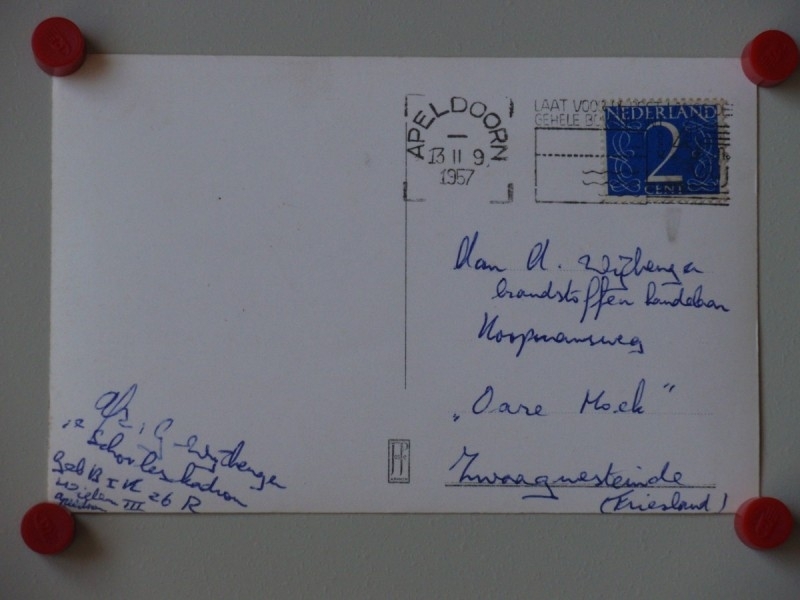 APELDOORN
13 II 9
1957
LAAT
GEHELE
NEDERLAND
2
CENT
Aan A. Wijbenga
brandstoffen handelaar
Koopmansweg
„Oare Hoek"
Zwaagwesteinde
(Friesland)
Afz. G. Wijbenga
1e Schooleskadron
Geb
Willem III